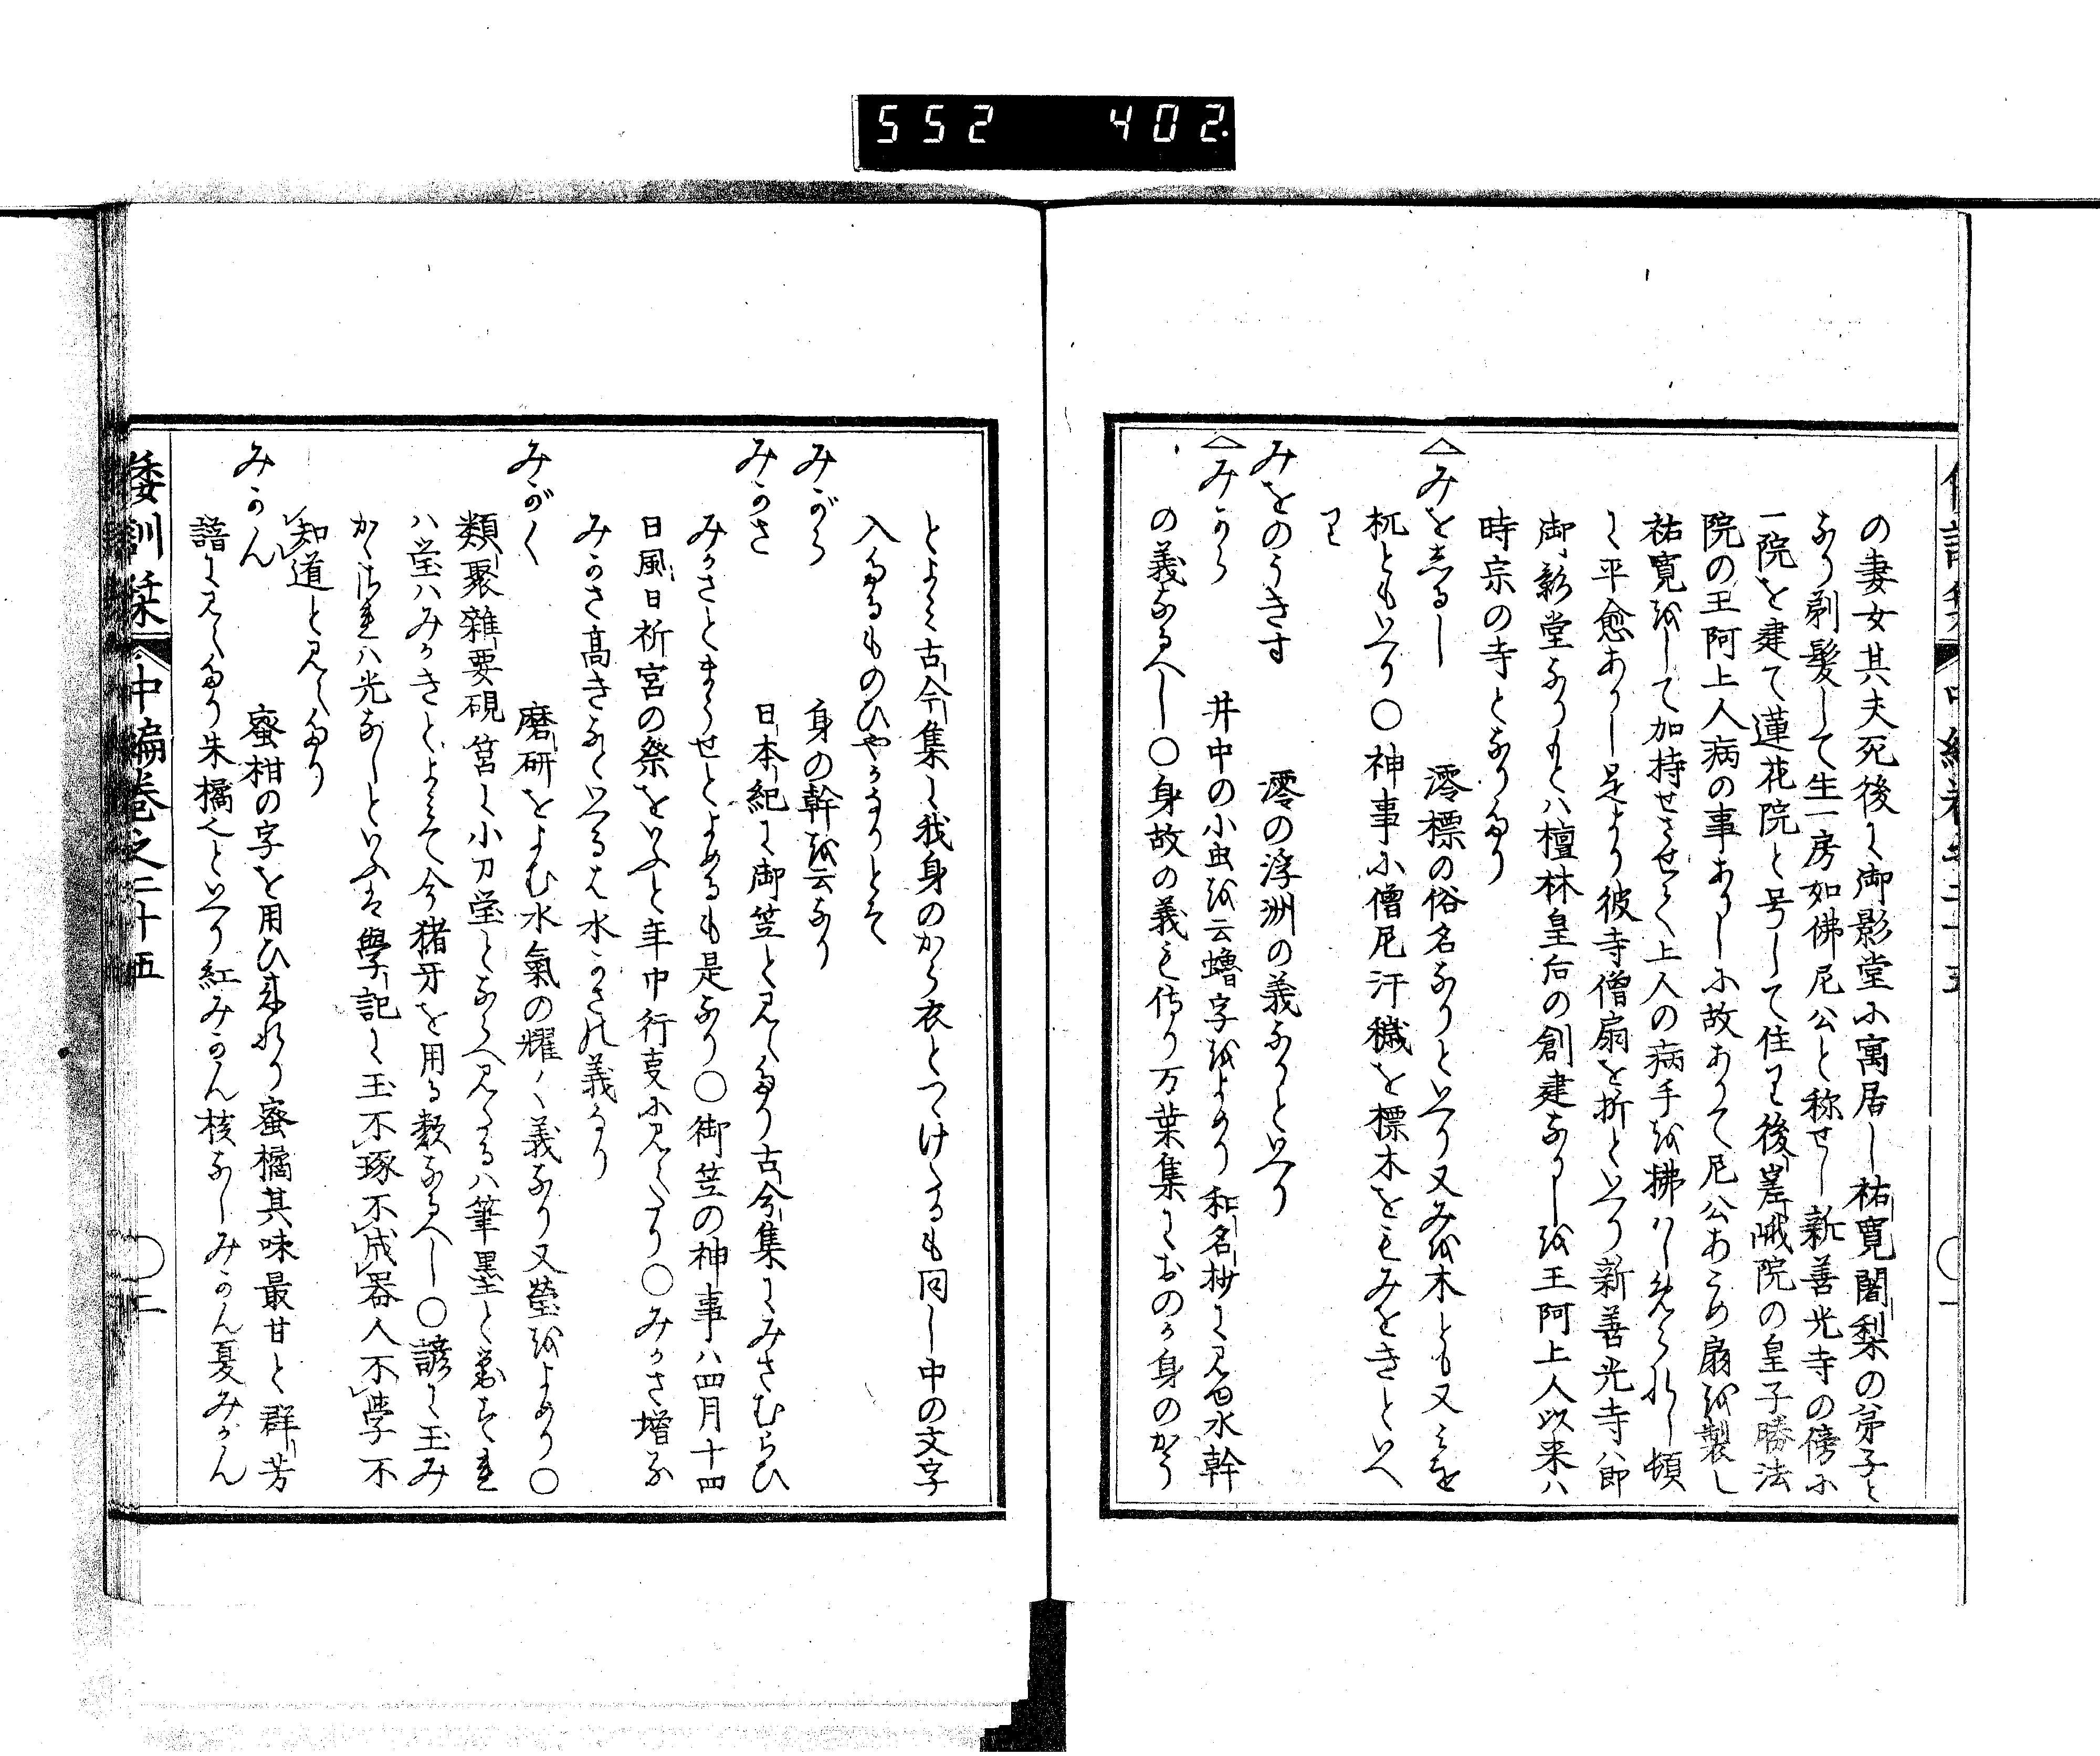 552 402.
の妻女其夫死後に御影堂に寓居し祐寛闍梨の弟子と
なり剃髪して生一房如佛尼公と称せし新善光寺の傍に
一院を建て蓮花院と号して住り後嵯峨院の皇子勝法
院の王阿上人病の事ありしに故ありて尼公あふめ扇を製し
祐寛をして加持せさせて上人の病手を拂ハしめられし頓
に平愈ありし足より彼寺僧扇を折といへり新善光寺ハ即
御影堂なりもとハ檀林皇后の創建なりしを王阿上人以来ハ
時宗の寺となりたり
△みをゑるし 澪標の俗名なりといへり又みを木とも又みを
杭ともいへり〇神事に僧尼汗穢を標木をもみをきといへ
り
みをのうきす 澪の浮洲の義なりといへり
△みから 井中の小虫を云蠁字をよめり和名抄に見ゆ水幹
の義なるへし〇身故の義も侍り万葉集におのか身のから
とよみ古今集に我身のから衣とつゝけたるも同し中の文字
入たるものひやかなりとそ
みがら 身の幹を云なり
みかさ 日本紀に御笠と見えたり古今集にみさむらひ
みかさとまうせとよめるも是なり〇御笠の神事ハ四月十四
日風日祈宮の祭をいふと年中行叓に見えたり〇みかさ増な
みかさ高きなといへるは水かさの義なり
みがく 磨研をよむ水氣の耀く義なり又瑩をよめり〇
類聚雜要硯筥に小刀瑩とならへ見えたるハ筆墨と並すれ
ハ瑩ハみかきとよみて今猪牙を用る類なるへし〇諺に玉み
かゝされハ光なしといふは學記に玉不琢不成器人不學不
知道と見えたり
みかん 蜜柑の字を用ひ來れり蜜橘其味最甘と群芳
譜に見えたり朱橘也といへり紅みかん核なしみかん夏みかん
倭訓栞 中編巻之二十五 〇二